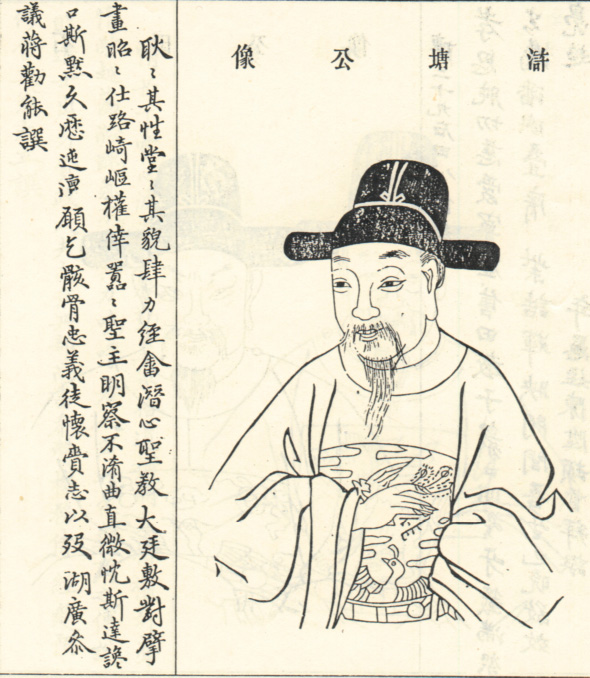 滸塘公像
耿〻其性堂〻其貌肆力經畬潛心聖教大廷敷對擘
畫昭〻仕路崎嶇權倖囂〻聖主明察不淆曲直微忱斯達讒
口斯默久歷迍邅願乞骸骨忠義徒懷賫志以歿 湖廣叅
議蔣勸能譔